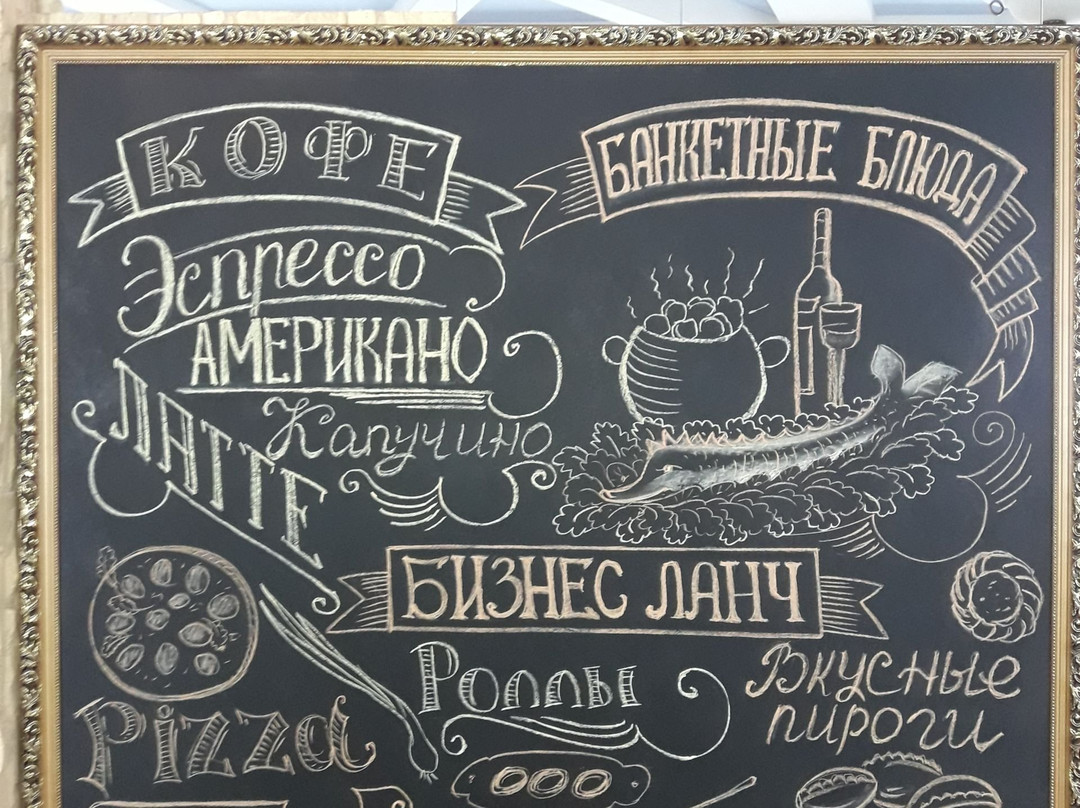 КОФЕ
Эспрессо
АМЕРИКАНО
ЛАТТЕ
Капучино
БАНКЕТНЫЕ БЛЮДА
БИЗНЕС ЛАНЧ
Pizza
Роллы
Вкусные
пироги